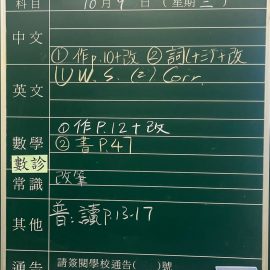 科目 10月9日(星期三)
中文 ①作p.10+改 ②詞(十三)+改
英文 (1) W.S. (2) Corr.
①作P.12+改
數學 ②書P.47
數診
常識 改筆
其他 普:讀p.13-17
通告 請簽閱學校通告( )號